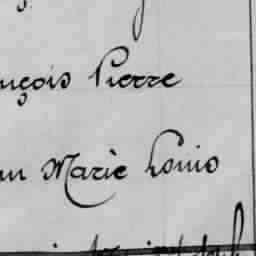 nçois Pierre
an Marie Louis